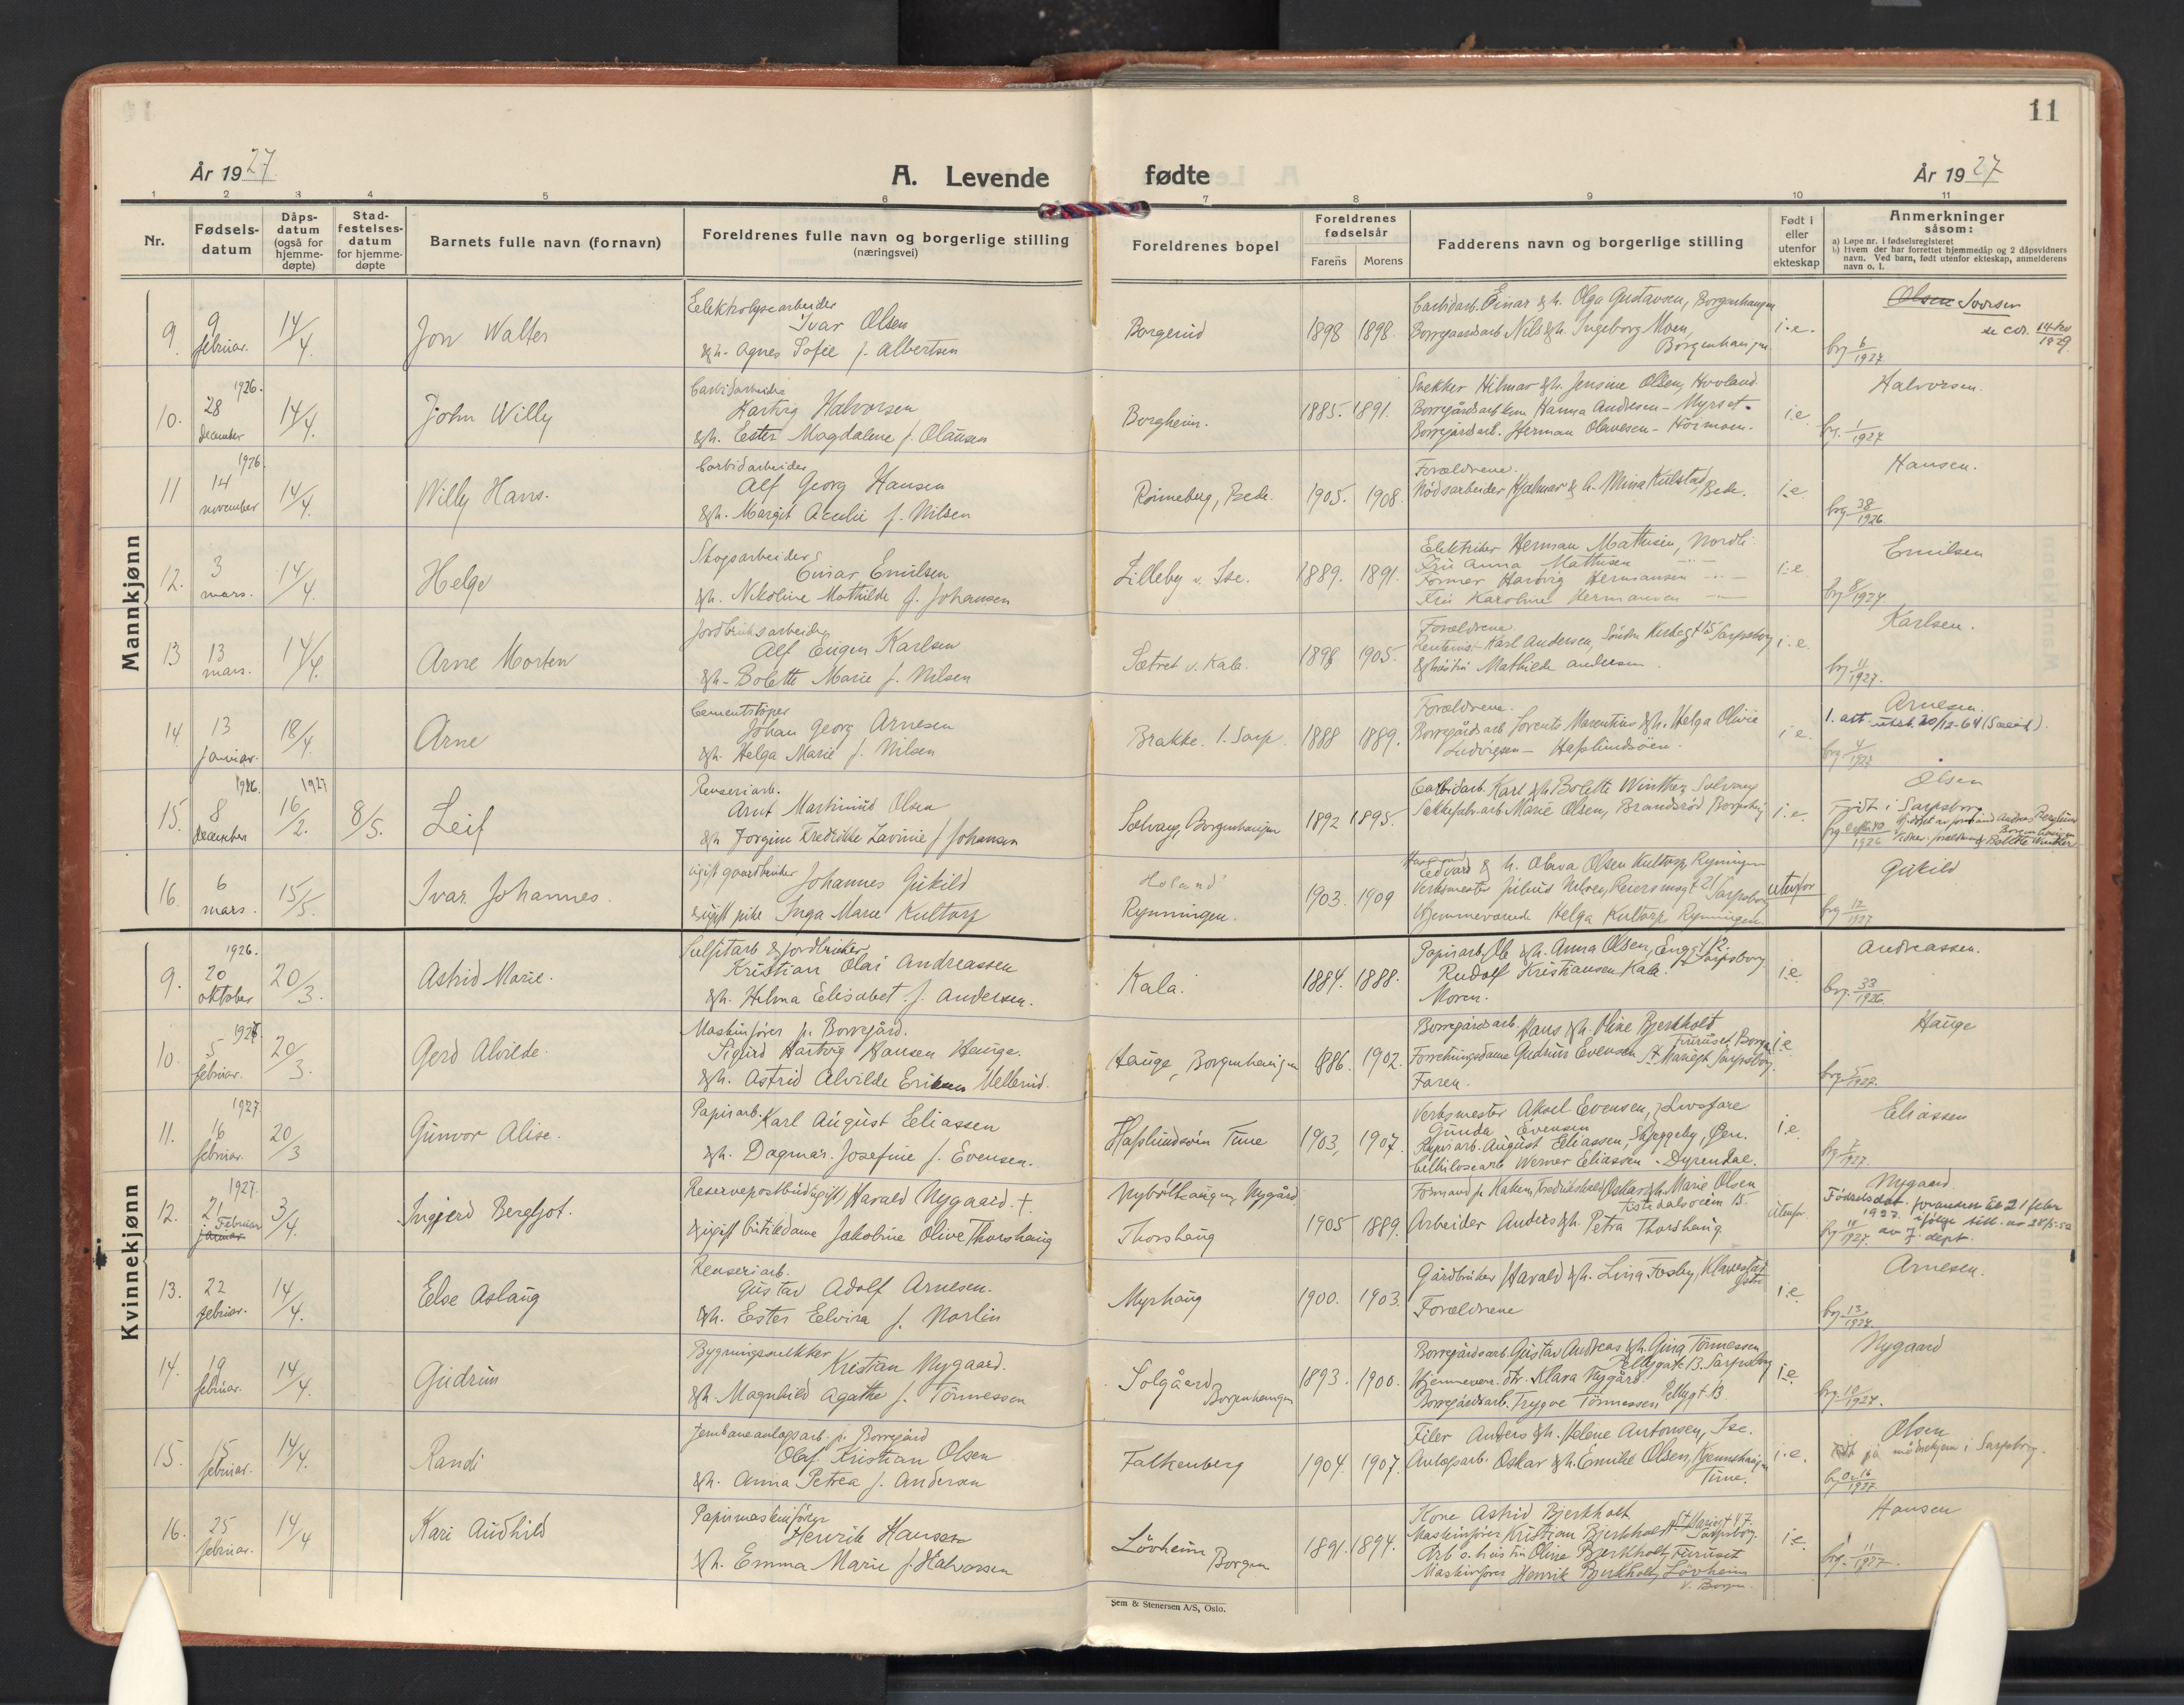 11
År 1927
A. Levende fødte
År 1927
1 2 3 4 5 6 7 8 9 10 11
Nr.
Fødsels-datum
Dåps-datum (også for hjemme-døpte)
Stad-festelses-datum for hjemme-døpte
Barnets fulle navn (fornavn)
Foreldrenes fulle navn og borgerlige stilling (næringsvei)
Foreldrenes bopel
Foreldrenes fødselsår
Farens Morens
Fadderens navn og borgerlige stilling
Født i eller utenfor ekteskap
Anmerkninger såsom:
a) Løpe nr. i fødselsregisteret
b) Hvem der har forrettet hjemmedåp og 2 dåpsvidners navn. Ved barn, født utenfor ekteskap, anmelderens navn o. l.
Mannkjønn
9. 9 februar. 14/4. Jon Walter
Elektrolysearbeider
Ivar Olsen
& h. Agnes Sofie f. Albertsen
Borgerud 1898 1898.
Carbidarb. Einar & h. Olga Gustavsen, Borgenhaugen
Borregaardsarb. Nils & h. Ingeborg Moen, Borgenhaugen.
i.e.
Olsen Iversen
brg 6/1927
10. 1926. 28 december 14/4. John Willy
Carbidarbeider
Hartvig Halvorsen
& h. Ester Magdalene f. Olausen
Borgheim. 1885. 1891.
Snekker Hilmar & h. Jensine Olsen, Hovland
Borregårdsarb. Hanna Andresen - Myrset.
Borregårdsarb. Herman Olavesen - Höimoen.
i.e.
Halvorsen.
brg. 1/1927
11 1926. 14 november 14/4. Willy Hans.
Carbidarbeider
Alf Georg Hansen
& h. Margit f. Nilsen
Rönneberg, Bede. 1905. 1908.
Forældrene.
Hjalmar & h. Mina Kulstad, Bede.
i.e.
Hansen.
brg 38/1926.
12. 3 mars. 14/4. Helge
Skogsarbeider
Einar Emilsen
& h. Nikoline Mathilde f. Johansen
Lilleby v. Ise. 1889. 1891.
Elektriker Herman Mathisen, Nordli
Fru Anna Mathisen
Former Hartvig Hermansen
Fru Karoline Hermansen
i.e.
Emilsen
brg 8/1927.
13 13 mars. 14/4. Arne Morten
Jordbruksarbeider
Alf Eugen Karlsen
& h. Bolette Marie f. Nilsen
Sætret v. Kala. 1898 1905.
Forældrene
Karl Andersen, Sarpsborg
& hustru Mathilde Andersen.
i.e.
Karlsen.
brg. 11/1927.
14 13 januar. 18/4. Arne
Cementstöper
Johan Georg Arnesen
& h. Helga Marie f. Nilsen
Brakke. 1. Sarp. 1888 1889.
Forældrene.
Borregårdsarb. Lorents Marentius & h. Helga Olivie
Ludvigsen - Hafslundsöen.
i.e.
Arnesen.
1. att. utst. 20/12-64
brg 4/1927
15. 1926. 8 december 1927 16/2. 8/5. Leif
Renseriarb.
Arnt Martinius Olsen
& h. Jorgine Fredrikke Lavinie f. Johansen
Solvang, Borgenhaugen 1892 1895.
Carbidarb. Karl & h. Bolette Winther, Solvang
Marie Olsen, Brandsröd, Borgenhaug
i.e.
Olsen
Födt i Sarpsborg
16. 6 mars. 15/5. Ivar Johannes.
ugift gaardbruker Johannes Gukild
& ugift pike Inga Marie Kultorp
Holand
Rynningen. 1903. 1909
Edvard & h. Olava Olsen Kultorp, Rynningen
Verksmester Julius Nilsen, Sarpsborg
Hjemmeværende Helga Kultorp, Rynningen.
utenfor
Gukild
brg 12/1927
Kvinnekjønn
9. 1926. 20 oktober 20/3. Astrid Marie.
Sulfitarb. & jordbruker
Kristian Olai Andreassen
& h. Hilma Elisabet f. Andersen.
Kala. 1884. 1888.
Papirarb. Ole & h. Anna Olsen, Sarpsborg
Rudolf Kristiansen Kala.
Moren.
i.e.
Andreassen.
brg. 33/1926.
10. 1927. 5 februar. 20/3. Gerd Alvilde.
Maskinfører p. Borregård.
Sigurd Hartvig Hansen Hauge.
& h. Astrid Alvilde Eriksen Mellerud.
Hauge, Borgenhaugen 1886. 1902.
Borregårdsarb. Hans & h. Oline Bjerkholt
Furuset, Borgen
Forretningsdame Gudrun Evensen St. Mariegt. Sarpsborg.
Faren.
i.e.
Hauge
brg 5/1927.
11. 1927. 16 februar. 20/3 Gunvor Alise.
Papirarb. Karl August Eliassen
& h. Dagmar Josefine f. Evensen.
Hafslundsöen Tune 1903, 1907.
Verksmester Aksel Evensen,
Gunda Evensen
Papirarb. August Eliassen, Skjeggeby, Øen.
Cellulosearb. Werner Eliassen - Dyrendal.
i.e.
Eliassen
brg 7/1927.
12. 1927. 21 Februar januar 3/4. Ingjerd Bergljot.
Reservepostbud ugift Harald Nygaard. +
& ugift butikdame Jakobine Olive Thorshaug
Nybölthaugen, Nygård
Thorshaug 1905 1889.
Formand p. Kaken, Fredrikshald Oskar & h. Marie Olsen
Tistedalsveien 15.
Arbeider Anders & h. Petra Thorshaug
utenfor
Nygaard.
Födselsdat. forandret til 21 febr 1927. ifölge skr. av 28/5-52
av J. dept.
brg 11/1927.
13. 22 februar. 14/4. Else Aslaug
Renseriarb.
Gustav Adolf Arnesen.
& h. Ester Elvira f. Norlin
Myrhaug 1900. 1903.
Gårdbruker Harald & h. Lina Fosby, Klavestad östre
Forældrene
i.e.
Arnesen.
brg. 13/1927.
14. 19 februar. 14/4. Gudrun
Bygningssnekker Kristian Nygaard.
& h. Magnhild Agathe f. Tönnessen
Solgaard Borgenhaugen 1893. 1900.
Borregårdsarb. Gustav Andreas & h. Gina Tönnessen
Pellygate 13. Sarpsborg
Hjemmevær. dtr. Klara Nygård.
Borregårdsarb. Trygve Tönnessen Pellygt. 13
i.e.
Nygaard
brg. 10/1927.
15. 15 februar. 14/4. Randi
Jernbaneanlægsarb. p. Borregård
Olaf Kristian Olsen
& h. Anna Petrea f. Andersen
Falkenberg 1904. 1907.
Filer Anders & h. Helene Antonsen, Ise.
Anlægsarb. Oskar & h. Emilie Olsen, Tune.
i.e.
Olsen
Födt på mödrehjem i Sarpsborg.
16. 25 februar. 14/4 Kari Audhild
Papirmaskinförer
Henrik Hansen
& h. Emma Marie f. Halvorsen
Lövheim Borgen 1891. 1894.
Kone Astrid Bjerkholt
Maskinfører Kristian Bjerkholt, St. Mariegt 47. Sarpsborg.
Arb. o. hustru Oline Bjerkholt, Furuset
Maskinfører Henrik Bjerkholt, Lövheim v. Borgen.
i.e.
Hansen
brg. 11/1927.
Sem & Stenersen A/S, Oslo.